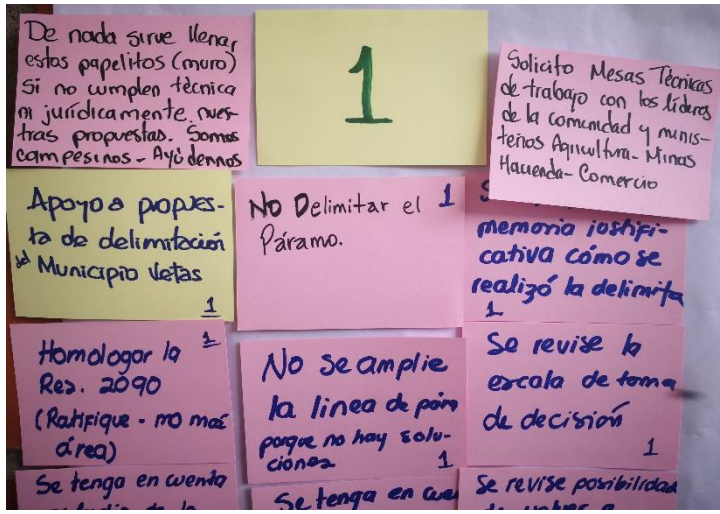 De nada sirve llenar
estos papelitos (muro)
Si no cumplen técnica
ni jurídicamente nues-
tras propuestas. Somos
campesinos - Ayúdennos
1
Solicito Mesas Técnicas
de trabajo con los líderes
de la comunidad y minis-
terios Agricultura - Minas
Hacienda - Comercio
Apoyo a propues-
ta de delimitación
del Municipio Vetas
1
No Delimitar el 1
Páramo.
memoria justifi-
cativa cómo se
realizó la delimita
1
1
Homologar la
Res. 2090
(Ratifique - no más
área)
No se amplie
la linea de pára
porque no hay solu-
ciones 1
Se revise la
escala de toma
de decisión
1
Se tenga en cuenta
de la
Se tenga en cuen
Se revise posibilidad
de volver a